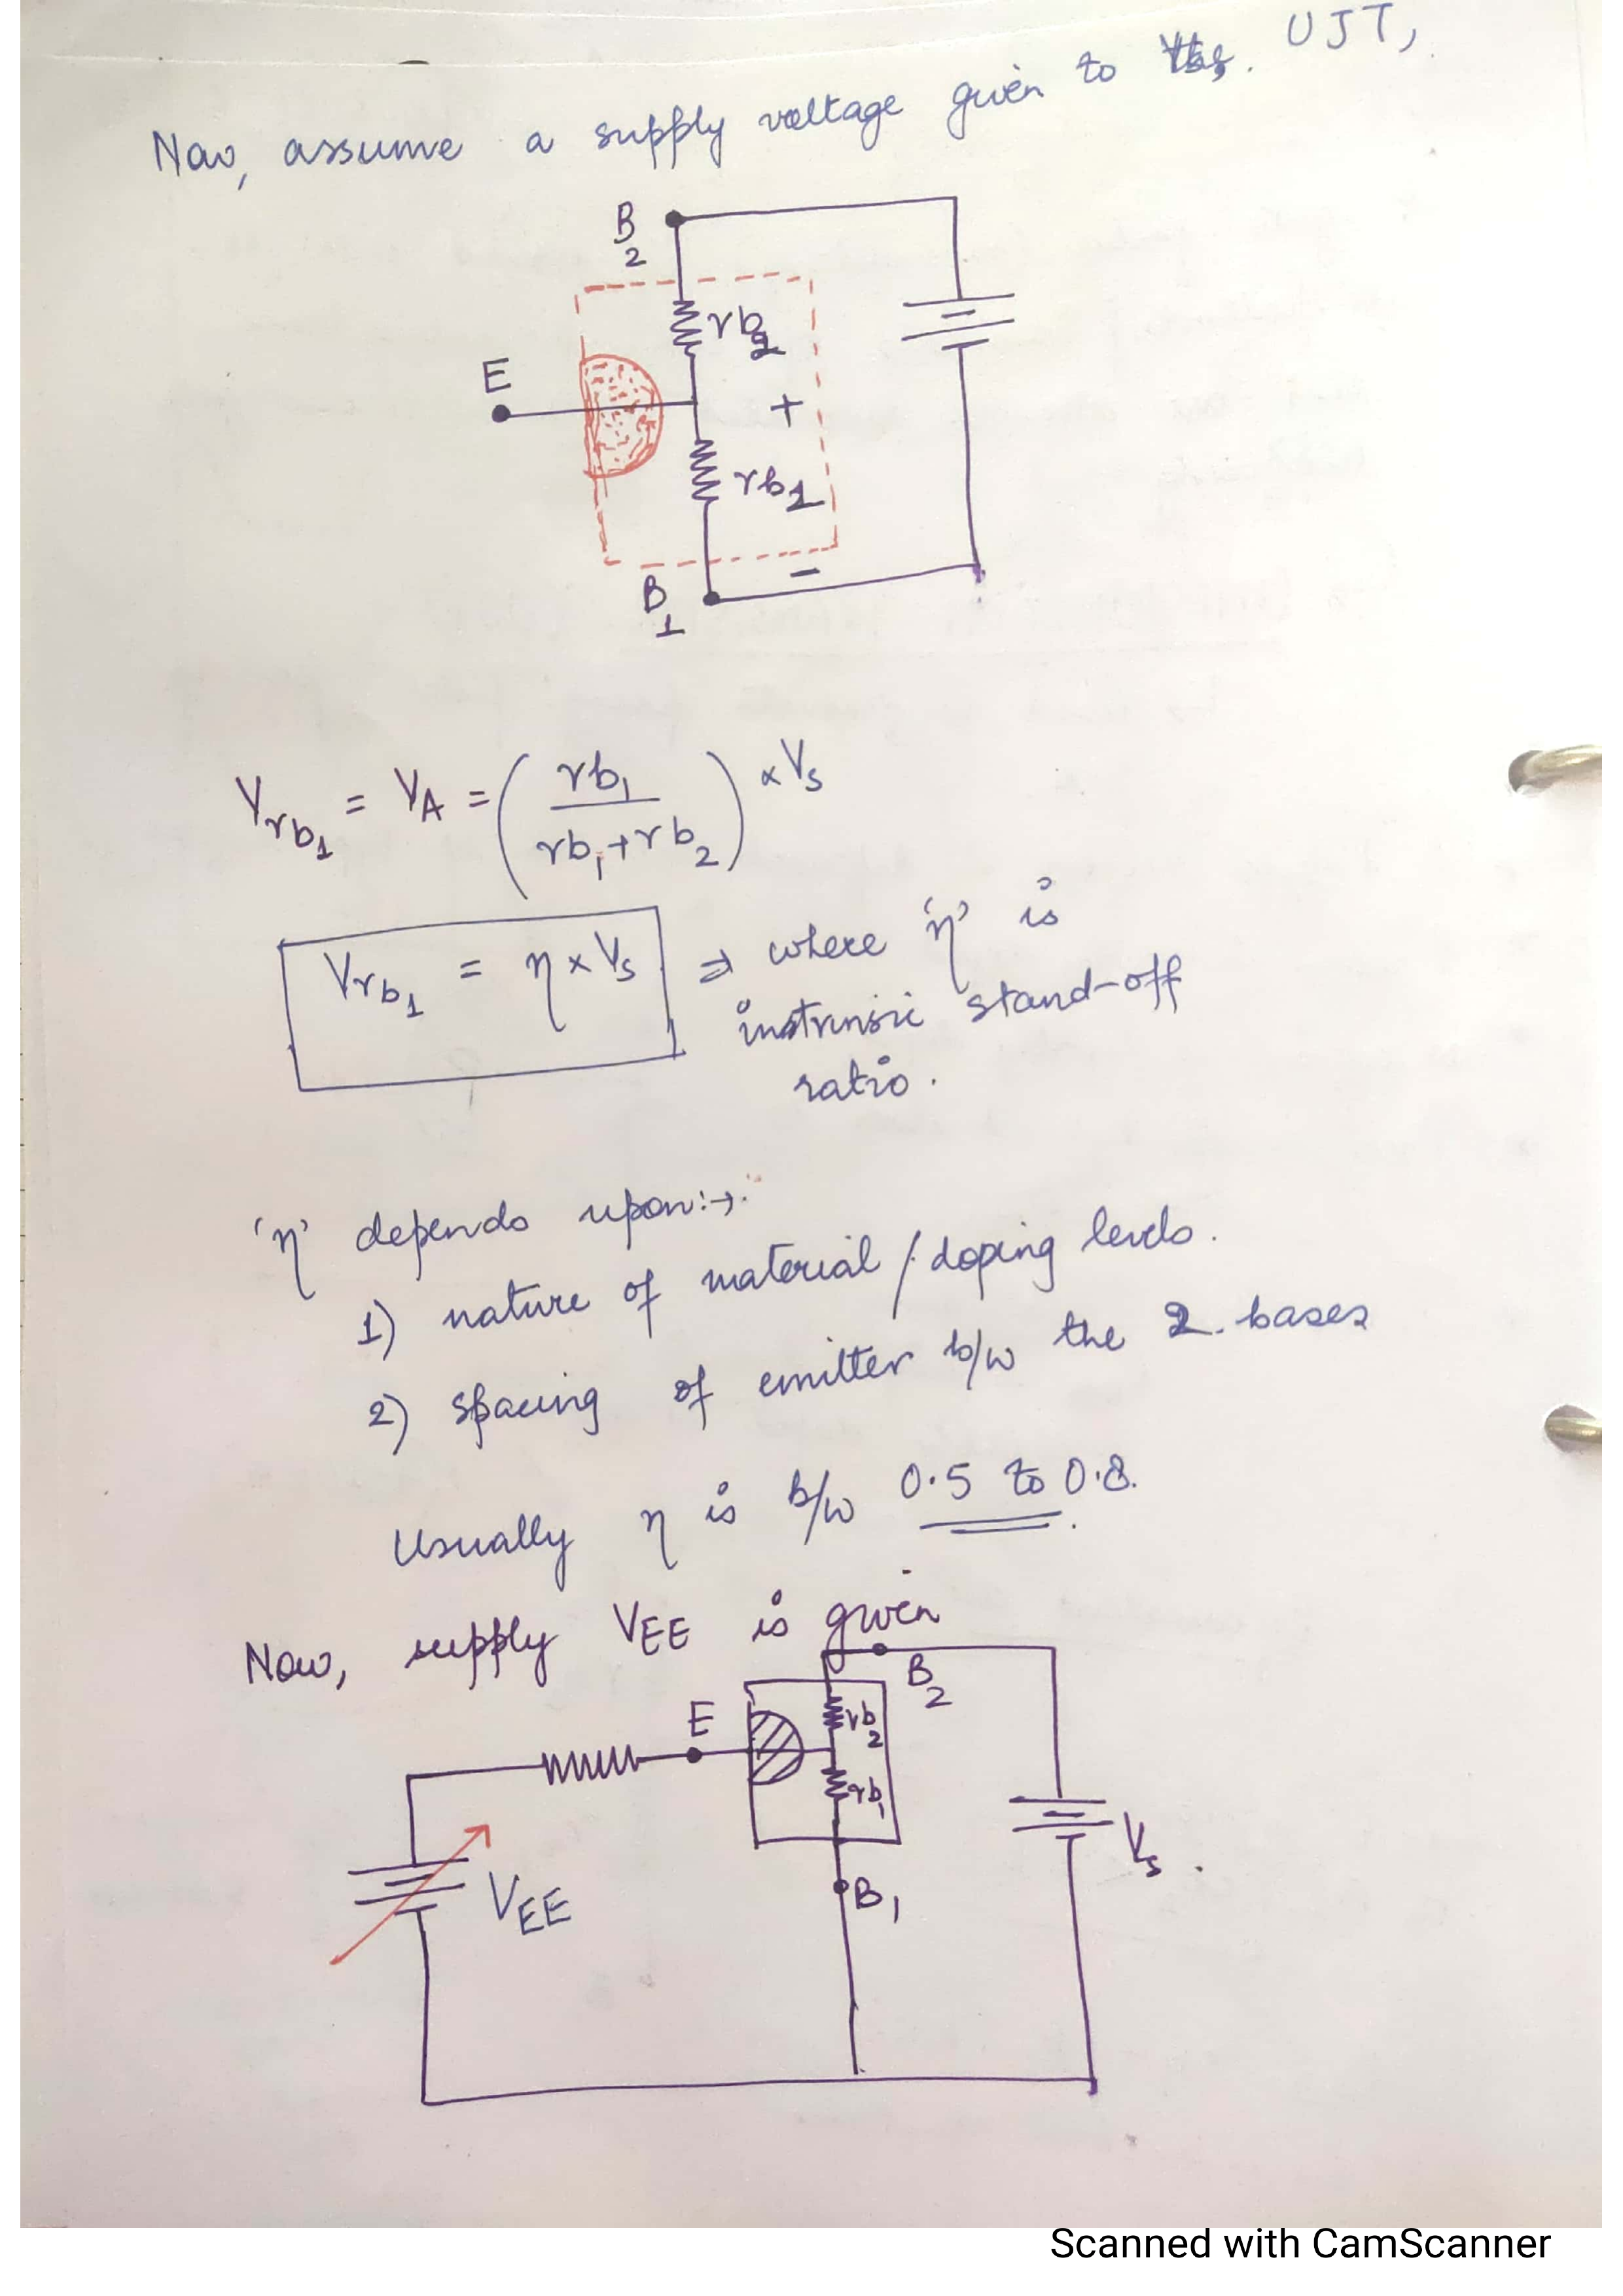 Now, assume a supply voltage given to UJT,
B2
rb2
E
+
rb1
-
B1
Vrb1 = VA = (rb1 / rb1+rb2) × Vs
Vrb1 = η × Vs ⇒ where 'η' is
instrinsic stand-off
ratio.
'η' depends upon:→
1) nature of material / doping levels.
2) spacing of emitter b/w the 2 bases
Usually η is b/w 0.5 to 0.8.
Now, supply VEE is given
B2
E
rb2
rb1
VEE
Vs
B1
Scanned with CamScanner